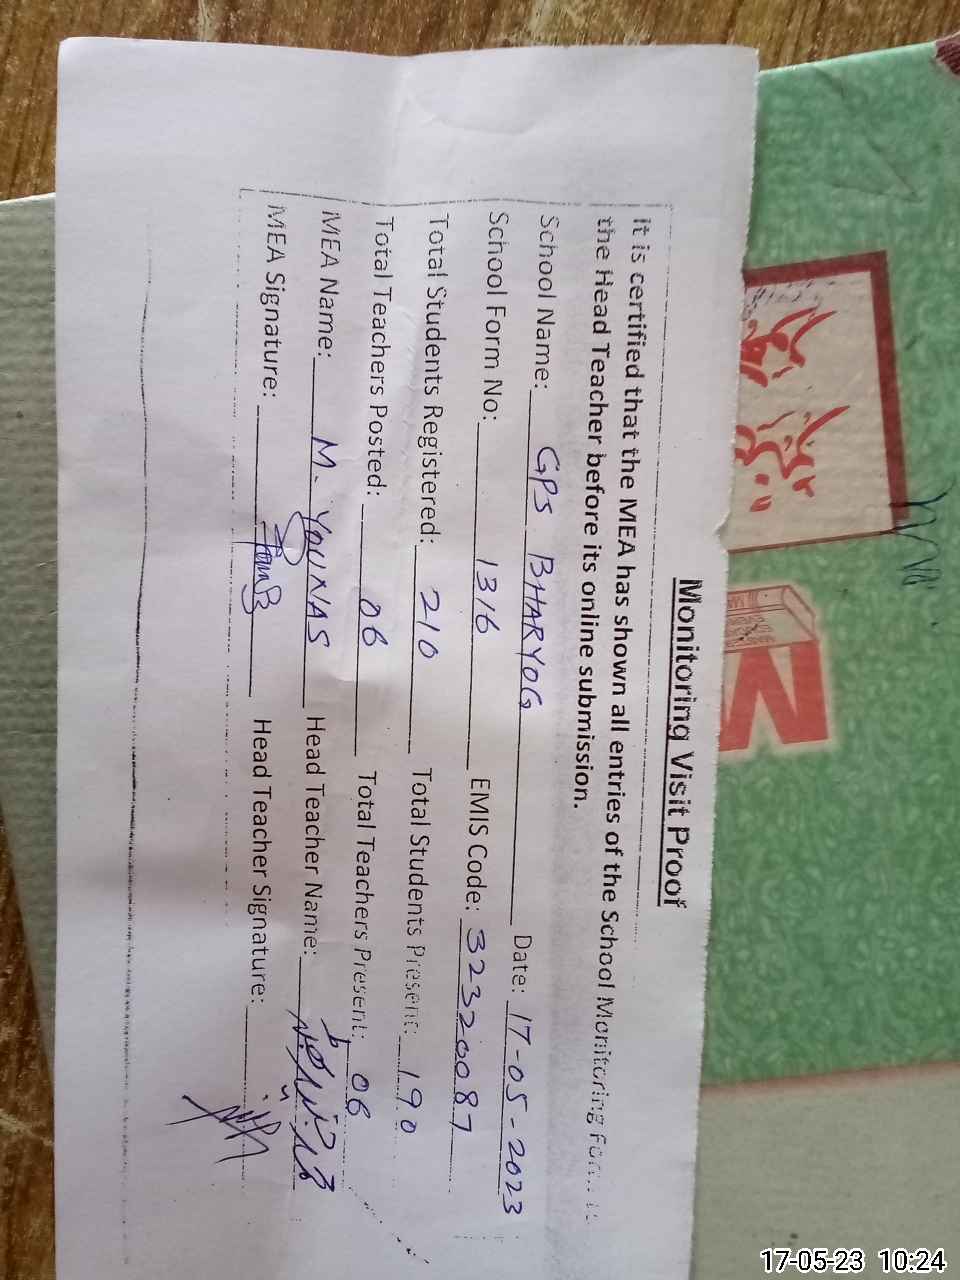 Monitoring Visit Proof
It is certified that the MEA has shown all entries of the School Monitoring Form to
the Head Teacher before its online submission.
School Name: GPS BHARYOG Date: 17-05-2023
School Form No: 1316 EMIS Code: 32320087
Total Students Registered: 210 Total Students Present: 190
Total Teachers Posted: 06 Total Teachers Present: 06
MEA Name: M. YOUNAS Head Teacher Name:
MEA Signature: Head Teacher Signature:
M
17-05-23 10:24